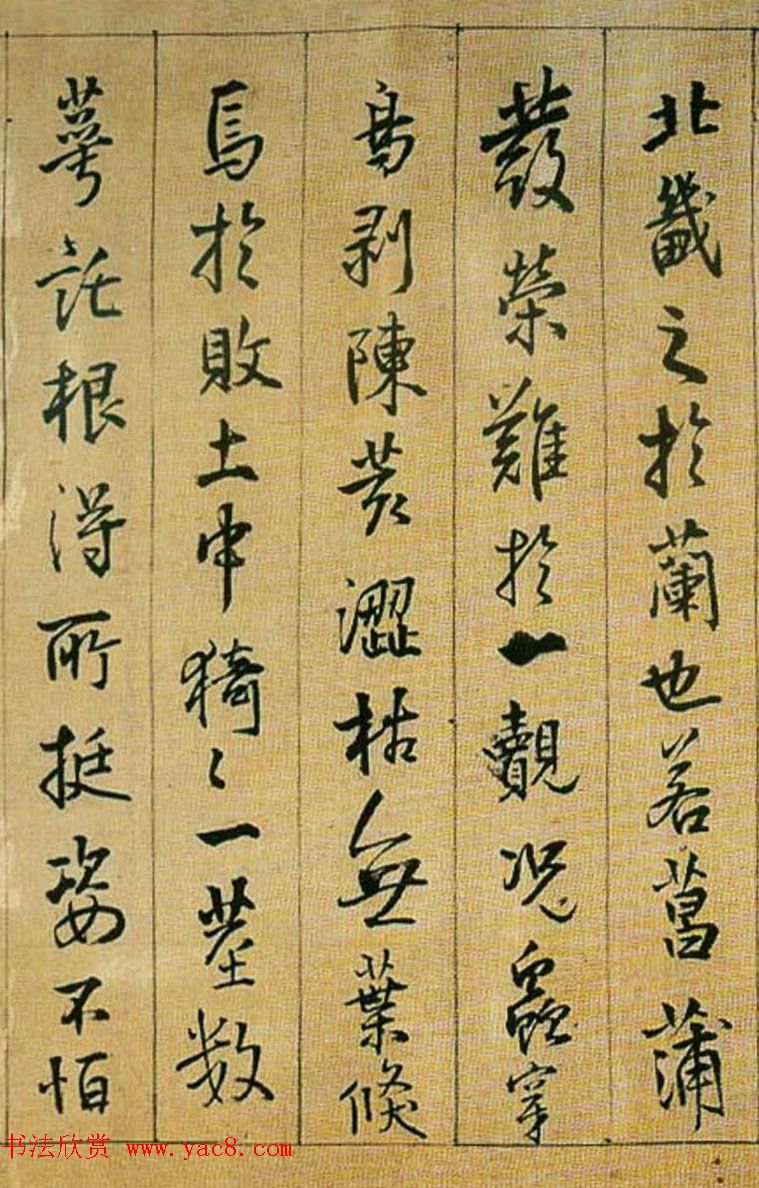 北畿之於蘭也若菖蒲
發榮難於一覿況蟲穿
鳥剥陳荄澀枯無葉倏
焉於敗土中猗〻一莖数
萼託根得所挺姿不怕
书法欣赏 www.yac8.com